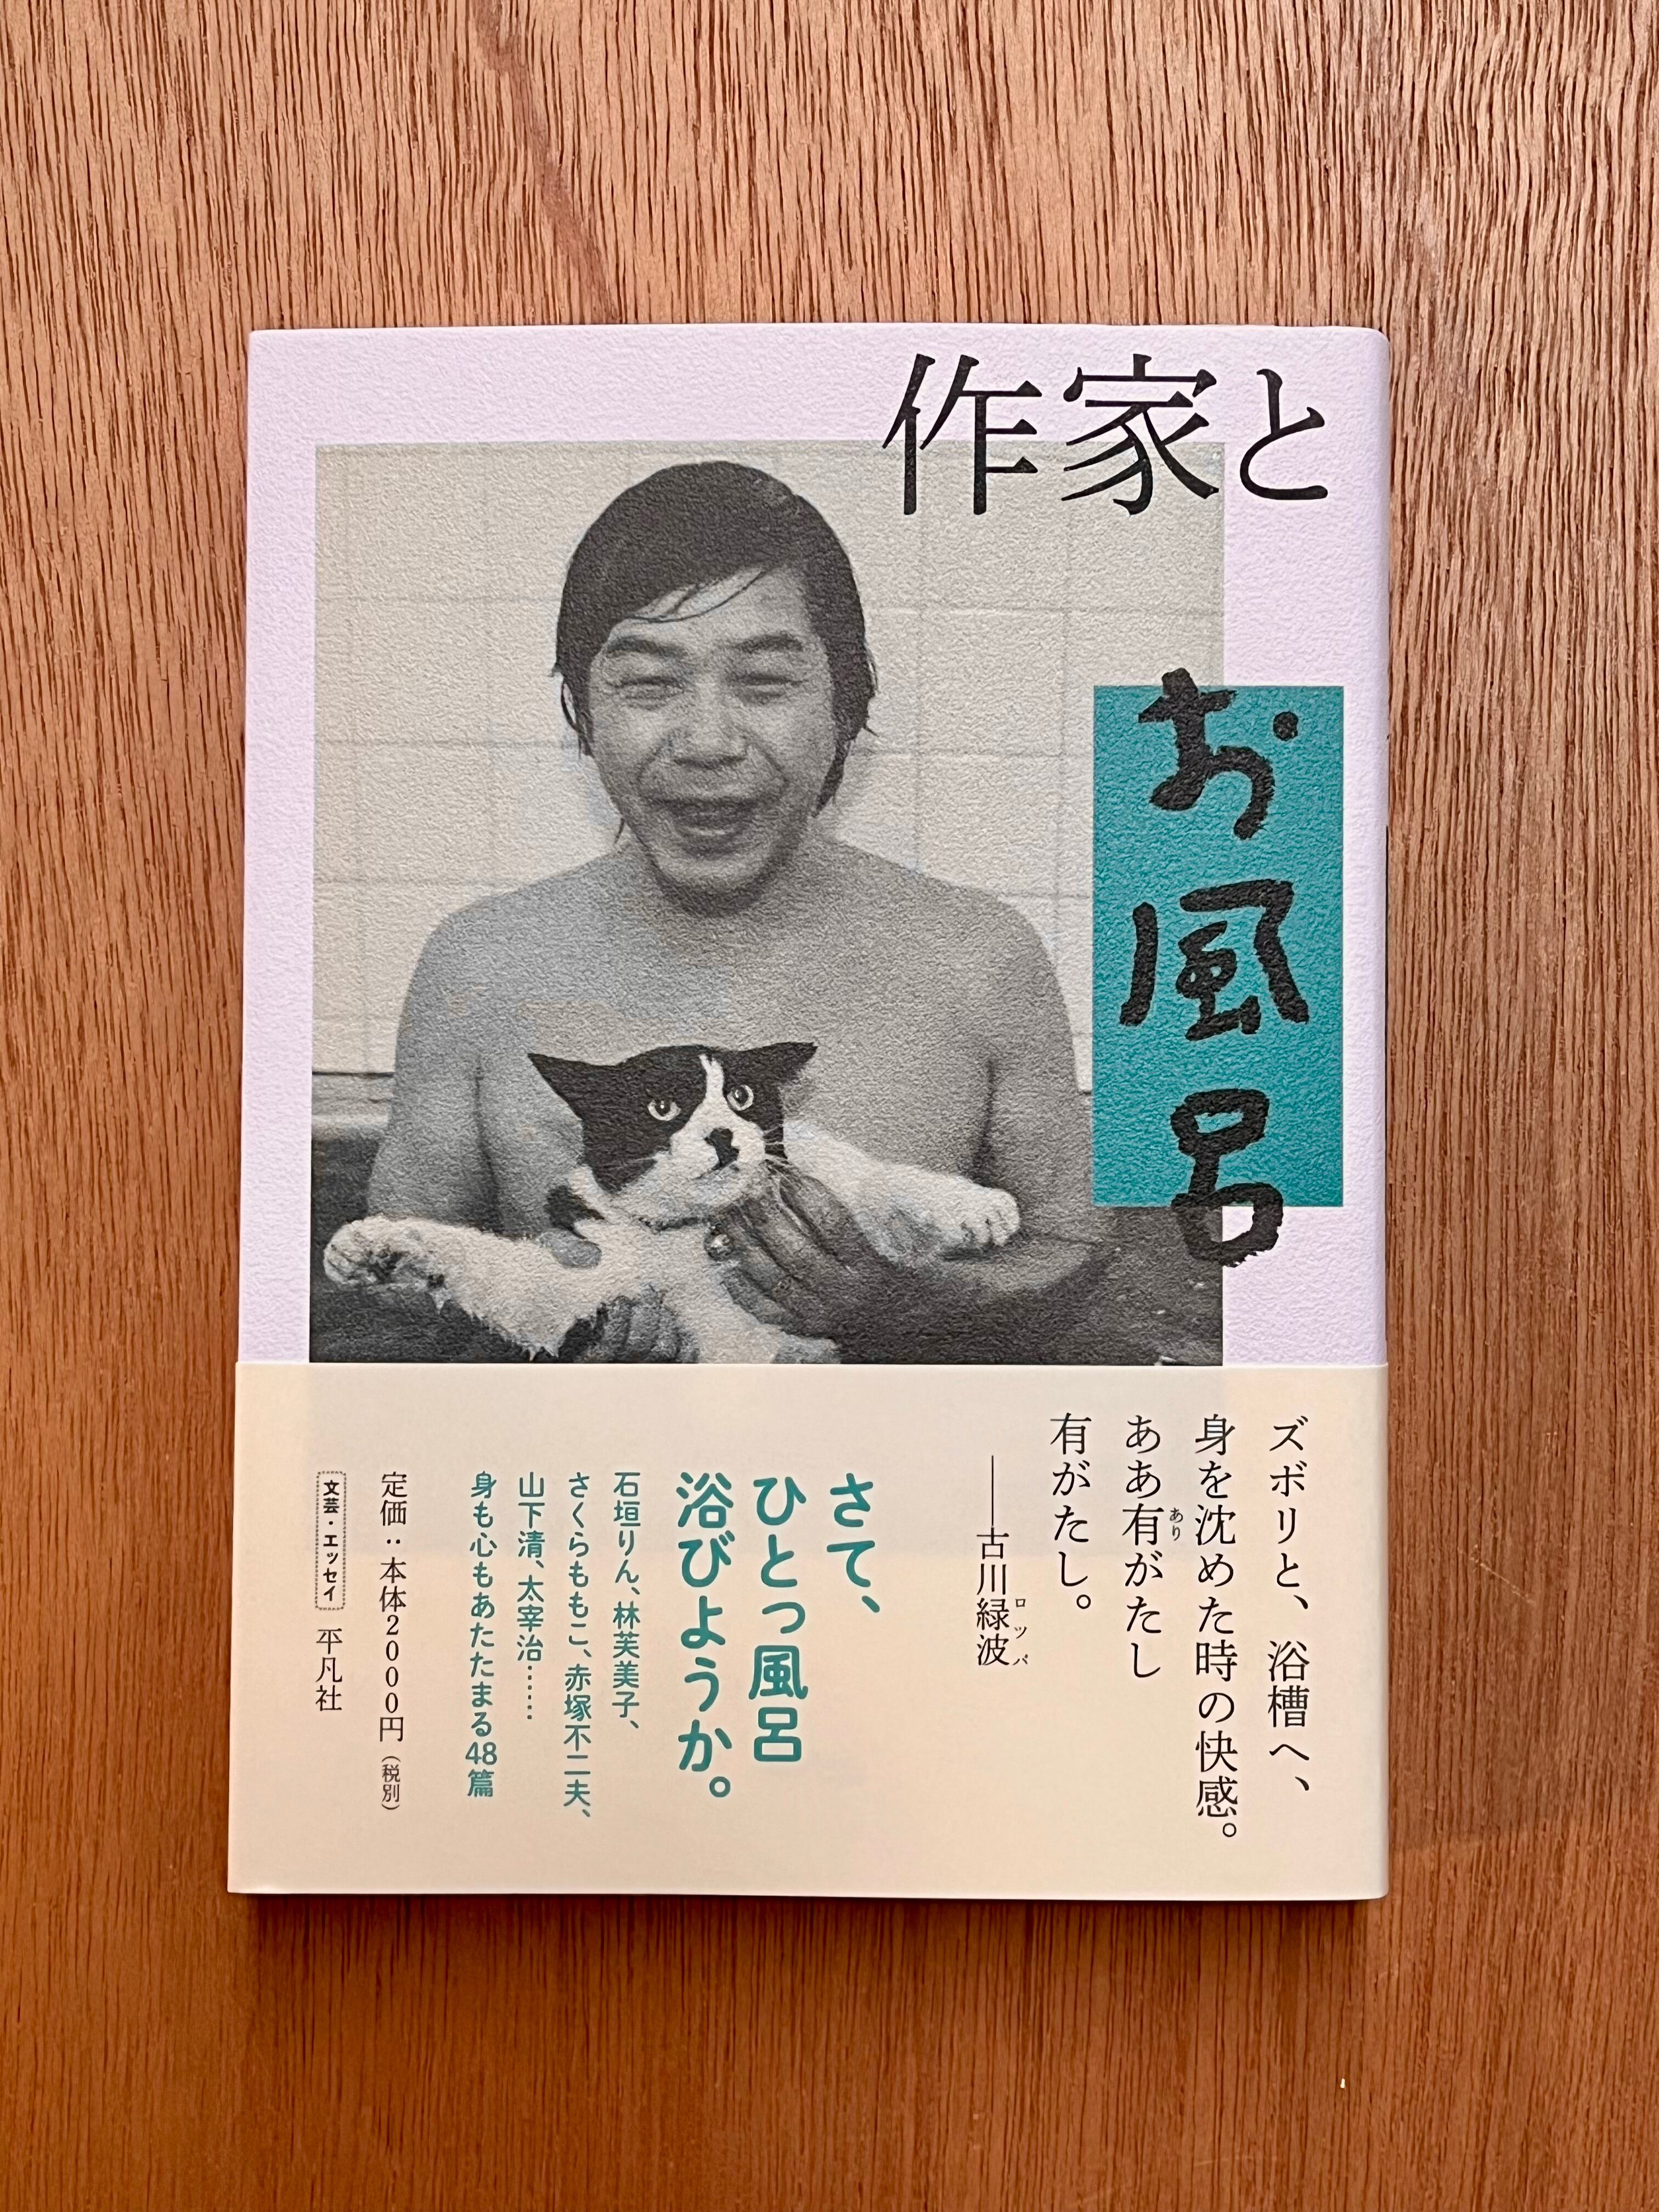 作家と
お風呂
ズボリと、浴槽へ、
身を沈めた時の快感。
ああ有がたし
あり
有がたし。
──古川緑波
ロッパ
さて、
ひとっ風呂
浴びようか。
石垣りん、林芙美子、
さくらももこ、赤塚不二夫、
山下清、太宰治……
身も心もあたたまる48篇
定価：本体2000円（税別）
文芸・エッセイ 平凡社